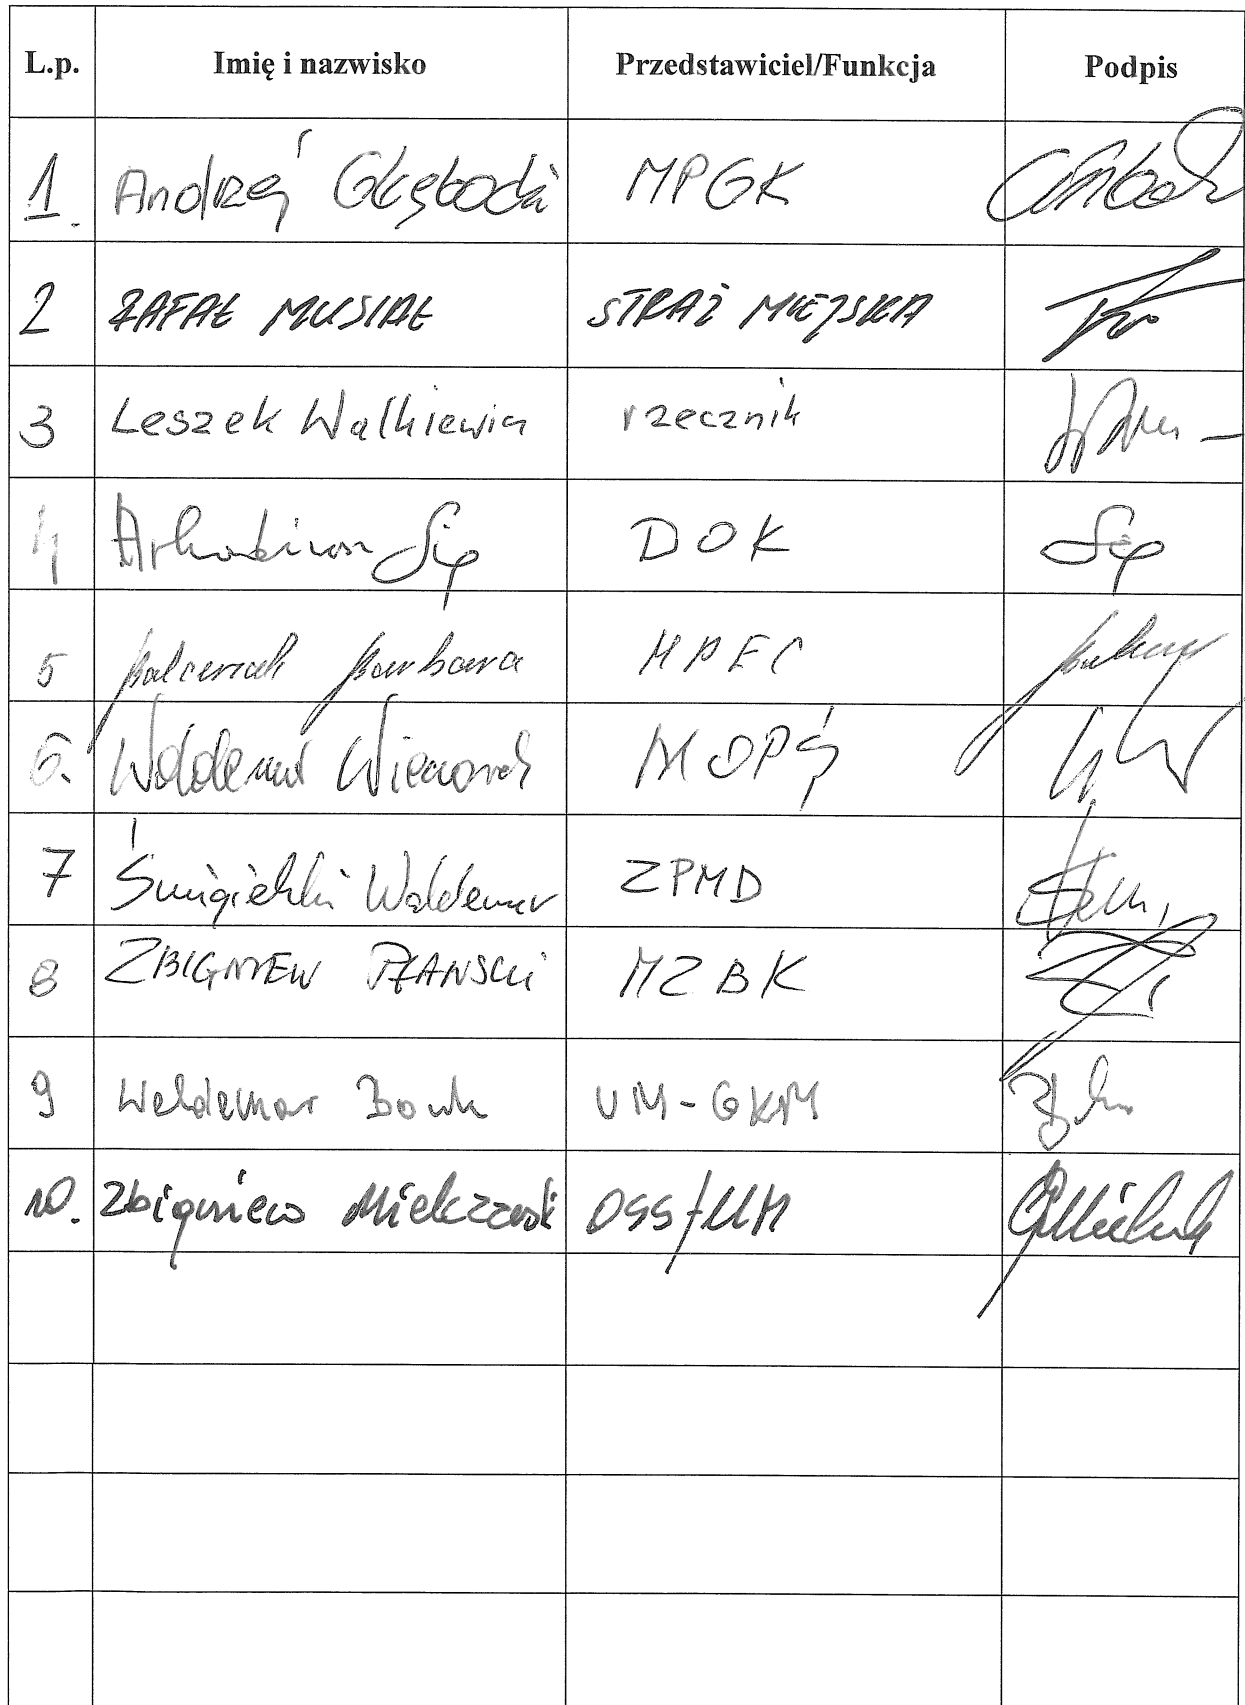 L.p. Imię i nazwisko Przedstawiciel/Funkcja Podpis
1. Andrzej Głębocki MPGK
2 RAFAŁ MUSIAŁ STRAŻ MIEJSKA
3 Leszek Walkiewicz rzecznik
4 Arkadiusz Sip DOK Sip
5 Balcerak Barbara MPEC
6. Waldemar Wieczorek MOPS
7 Śmigielski Waldemar ZPMD
8 ZBIGNIEW MZBK
9 Waldemar UM-GKM
10. Zbigniew Mielczarek OSS/UM